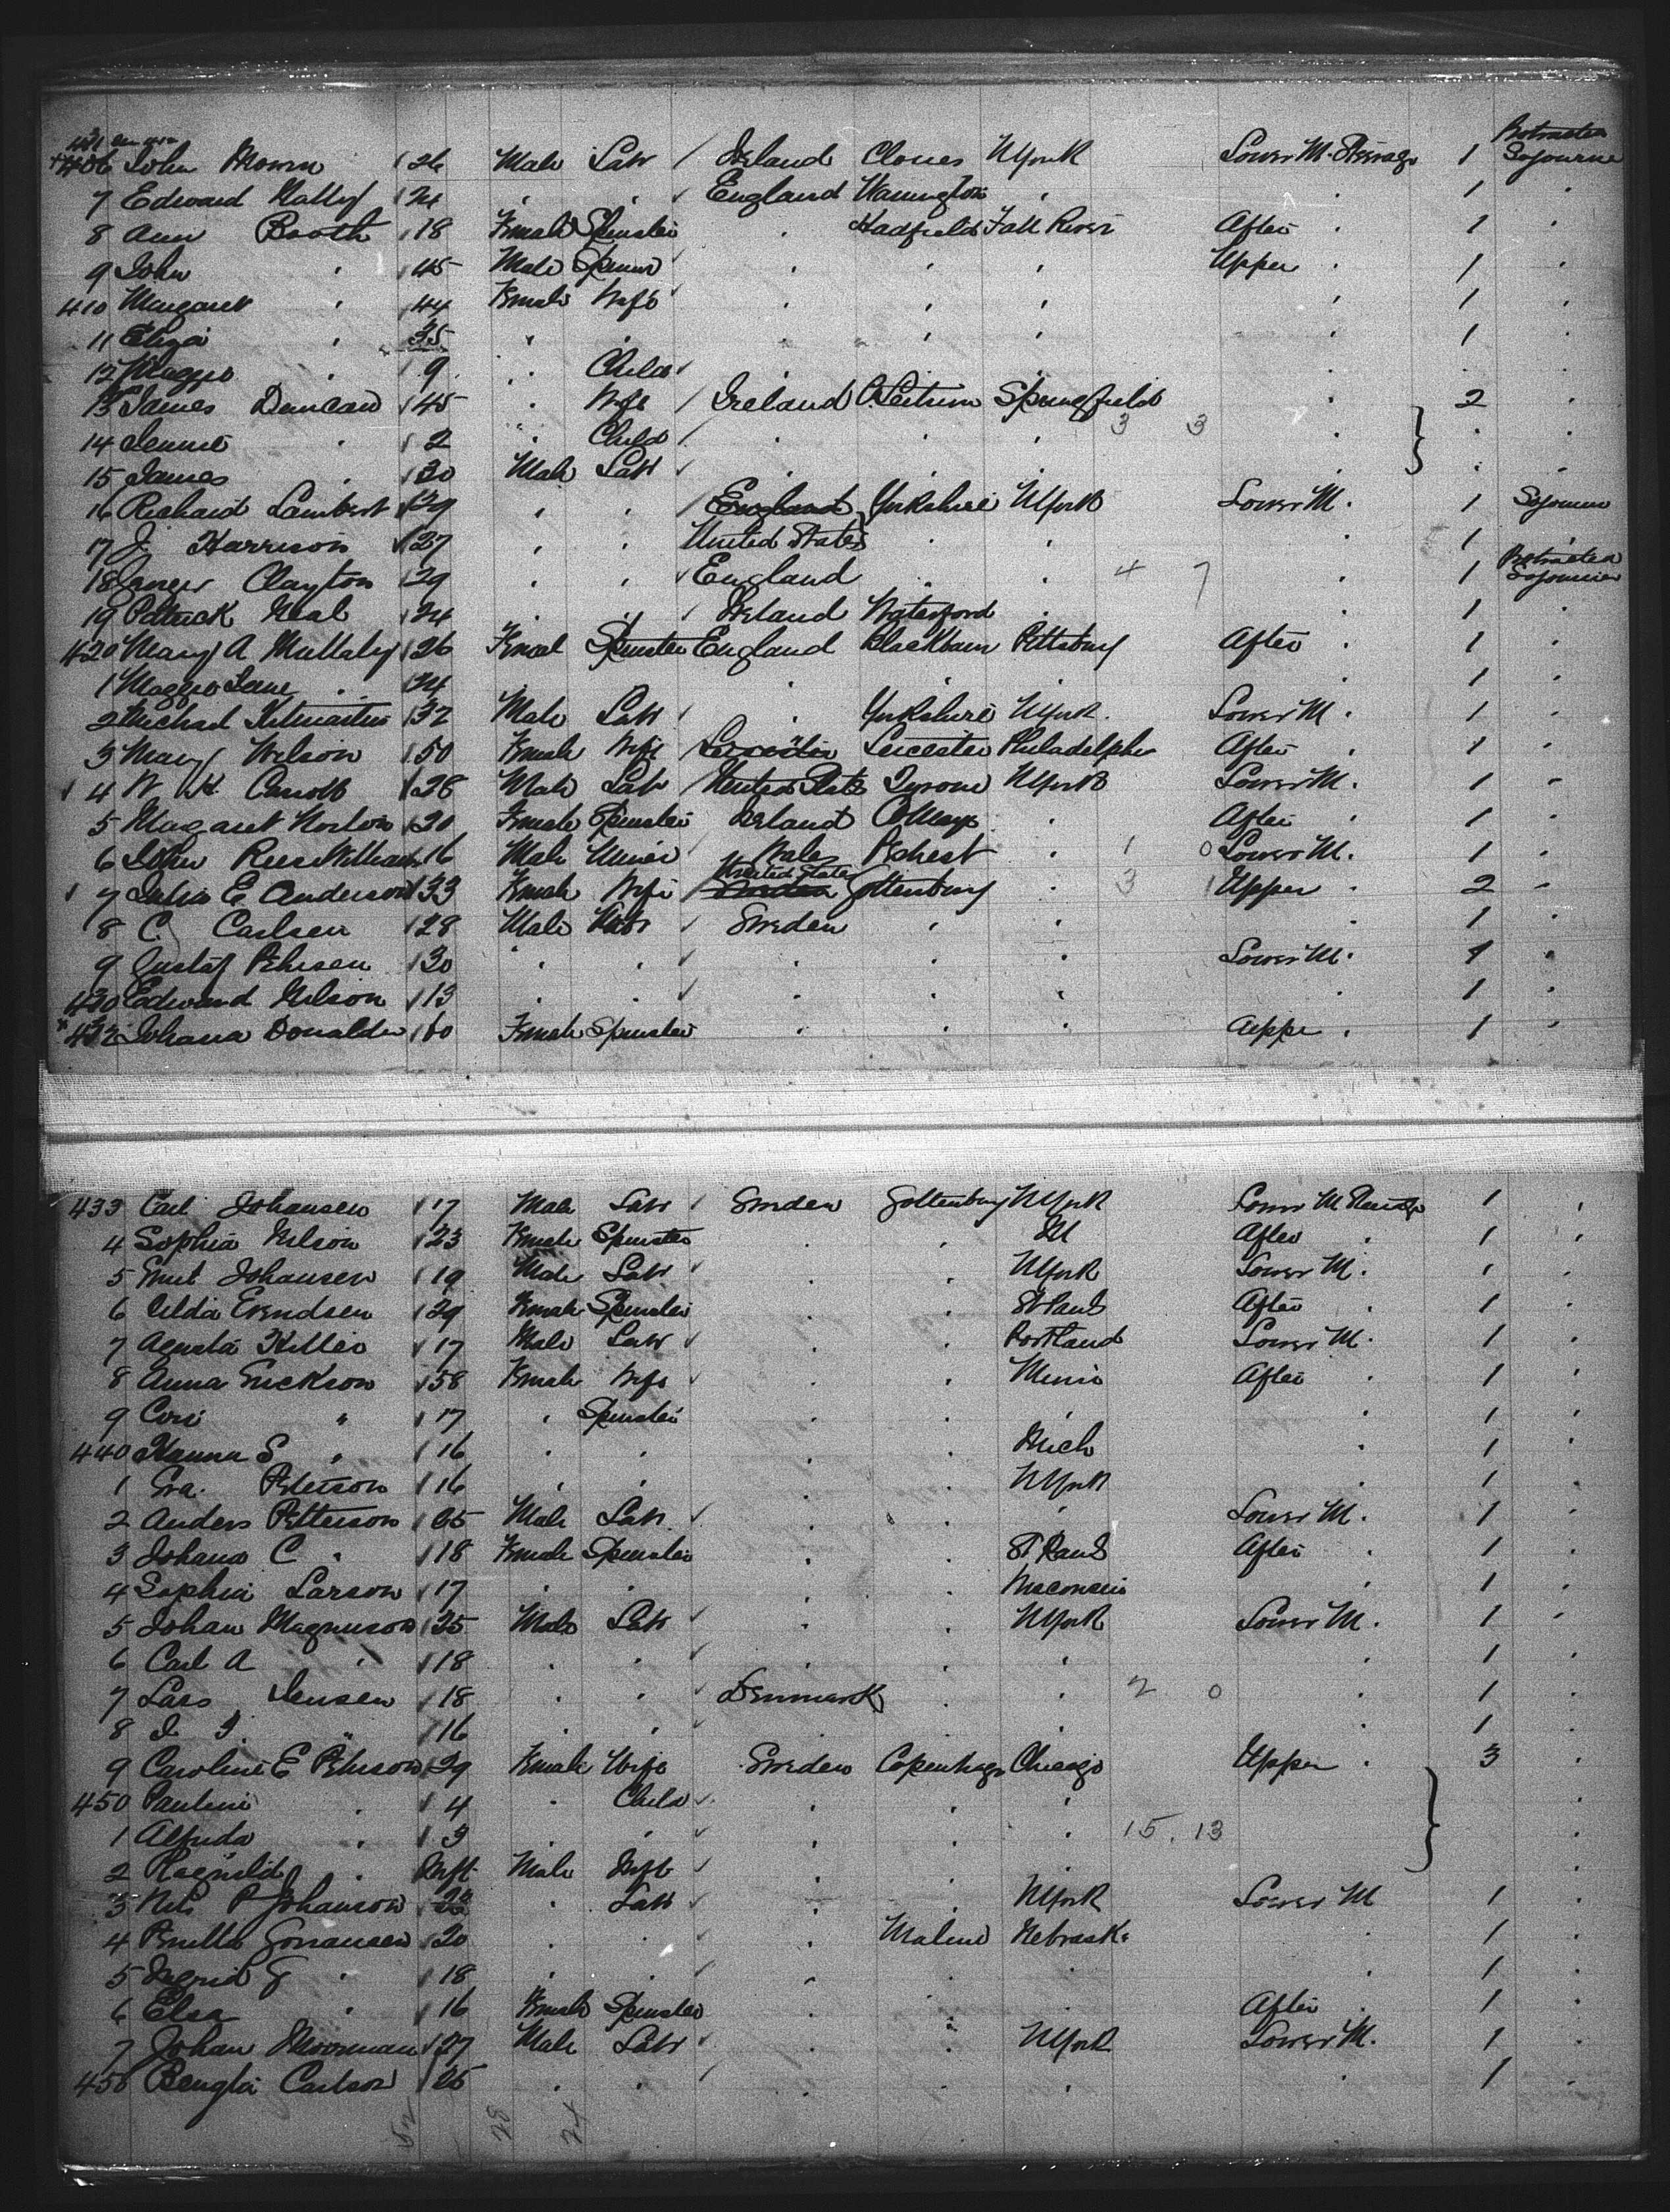 406 John 26 Male Labr Ireland Clones NYork Lower M. Steerage 1 Protracted Sojourne
7 Edward 24 " " England Warrington " " 1 "
8 Ann Booth 18 Female Spinster " Hadfield Fall River After " 1 "
9 John " 45 Male " " " Upper " 1 "
410 Margaret " 44 Female Wife " " " " 1 "
11 Eliza " 35 " " " " " 1 "
12 Maggie " 9 " Child " " " "
13 James Duncan 45 " Wife Ireland C. Leitrim Springfield " 2 "
14 Jennie " 2 " Child " " " 3 3 " " "
15 James " 30 Male Labr " " " " " "
16 Richard Lambert 29 " " England Yorkshire NYork Lower M. 1 Sojourn
17 J. Harrison 27 " " United States " " " 1
18 Clayton 29 " " England " " 4 7 " 1 Protracted Sojourn
19 Patrick Neal 24 " " Ireland Waterford " " 1 "
420 Mary A Mullaly 26 Femal Spinster England Blackburn Pittsburg After " 1 "
1 Maggie Jane " 24 " " " " " " 1 "
2 Michael 32 Male Labr " Yorkshire NYork Lower M. 1 "
3 Mary Wilson 50 Female Wife Leicester Leicester Philadelphia After " 1 "
4 W. H. Carroll 28 Male Labr United States Tyrone NYork Lower M. 1 "
5 Magaret Norton 20 Female Spinster Ireland CoMayo " After " 1 "
6 John Rees Williams 16 Male Miner Wales " 1 0 Lower M. 1 "
7 Julia E. Anderson 33 Female Wife United States Sweden Gottenburg " 3 1 Upper " 2 "
8 C. Carlsen 28 Male Labr Sweden " " " 1 "
9 Gustaf Pehrsen 30 " " " " " Lower M. 1 "
430 Edward Nelson 13 " " " " " " 1 "
432 Johana 60 Female Spinster " " " Upper " 1 "
433 Carl Johansen 17 Male Labr Sweden Gottenburg NYork Lower M Steerage 1 "
4 Sophia Nelson 23 Female Spinster " " Ill After " 1 "
5 Emil Johansen 19 Male Labr " " NYork Lower M. 1 "
6 29 Female Spinster " " St Paul After " 1 "
7 17 Male Labr " " Portland Lower M. 1 "
8 Anna Erickson 58 Female Wife " " Minn After " 1 "
9 " 17 " Spinster " " " " 1 "
440 Hanna S " 16 " " " " Mich " 1 "
1 Eva Peterson 16 " " " " NYork " 1 "
2 Anders Petterson 65 Male Labr " " " Lower M. 1 "
3 Johana C " 18 Female Spinster " " St Paul After " 1 "
4 Sophia Larson 17 " " " " Wisconsin " 1 "
5 Johan Magnuson 25 Male Labr " " NYork Lower M. 1 "
6 Carl A " 18 " " " " " " 1 "
7 Lars Jensen 18 " " Denmark " " 2 0 " 1 "
8 " 16 " " " " " " 1 "
9 Caroline E Pehrson 29 Female Wife Sweden Copenhagn Chicago Upper " 3 "
450 Paulina " 4 " Child " " " "
1 Alfrida " 3 " " " " " 15. 13 "
2 " Inft Male Inft " " " "
3 Nils P Johanson 22 " Labr " " NYork Lower M 1 "
4 20 " " " Malmo Nebraska " 1 "
5 Ingrid " 18 " " " " " " 1 "
6 Elsa " 16 Female Spinster " " " After " 1 "
7 Johan 27 Male Labr " " NYork Lower M. 1 "
458 Bengta Carlson 25 " " " " " 1 "
28 24